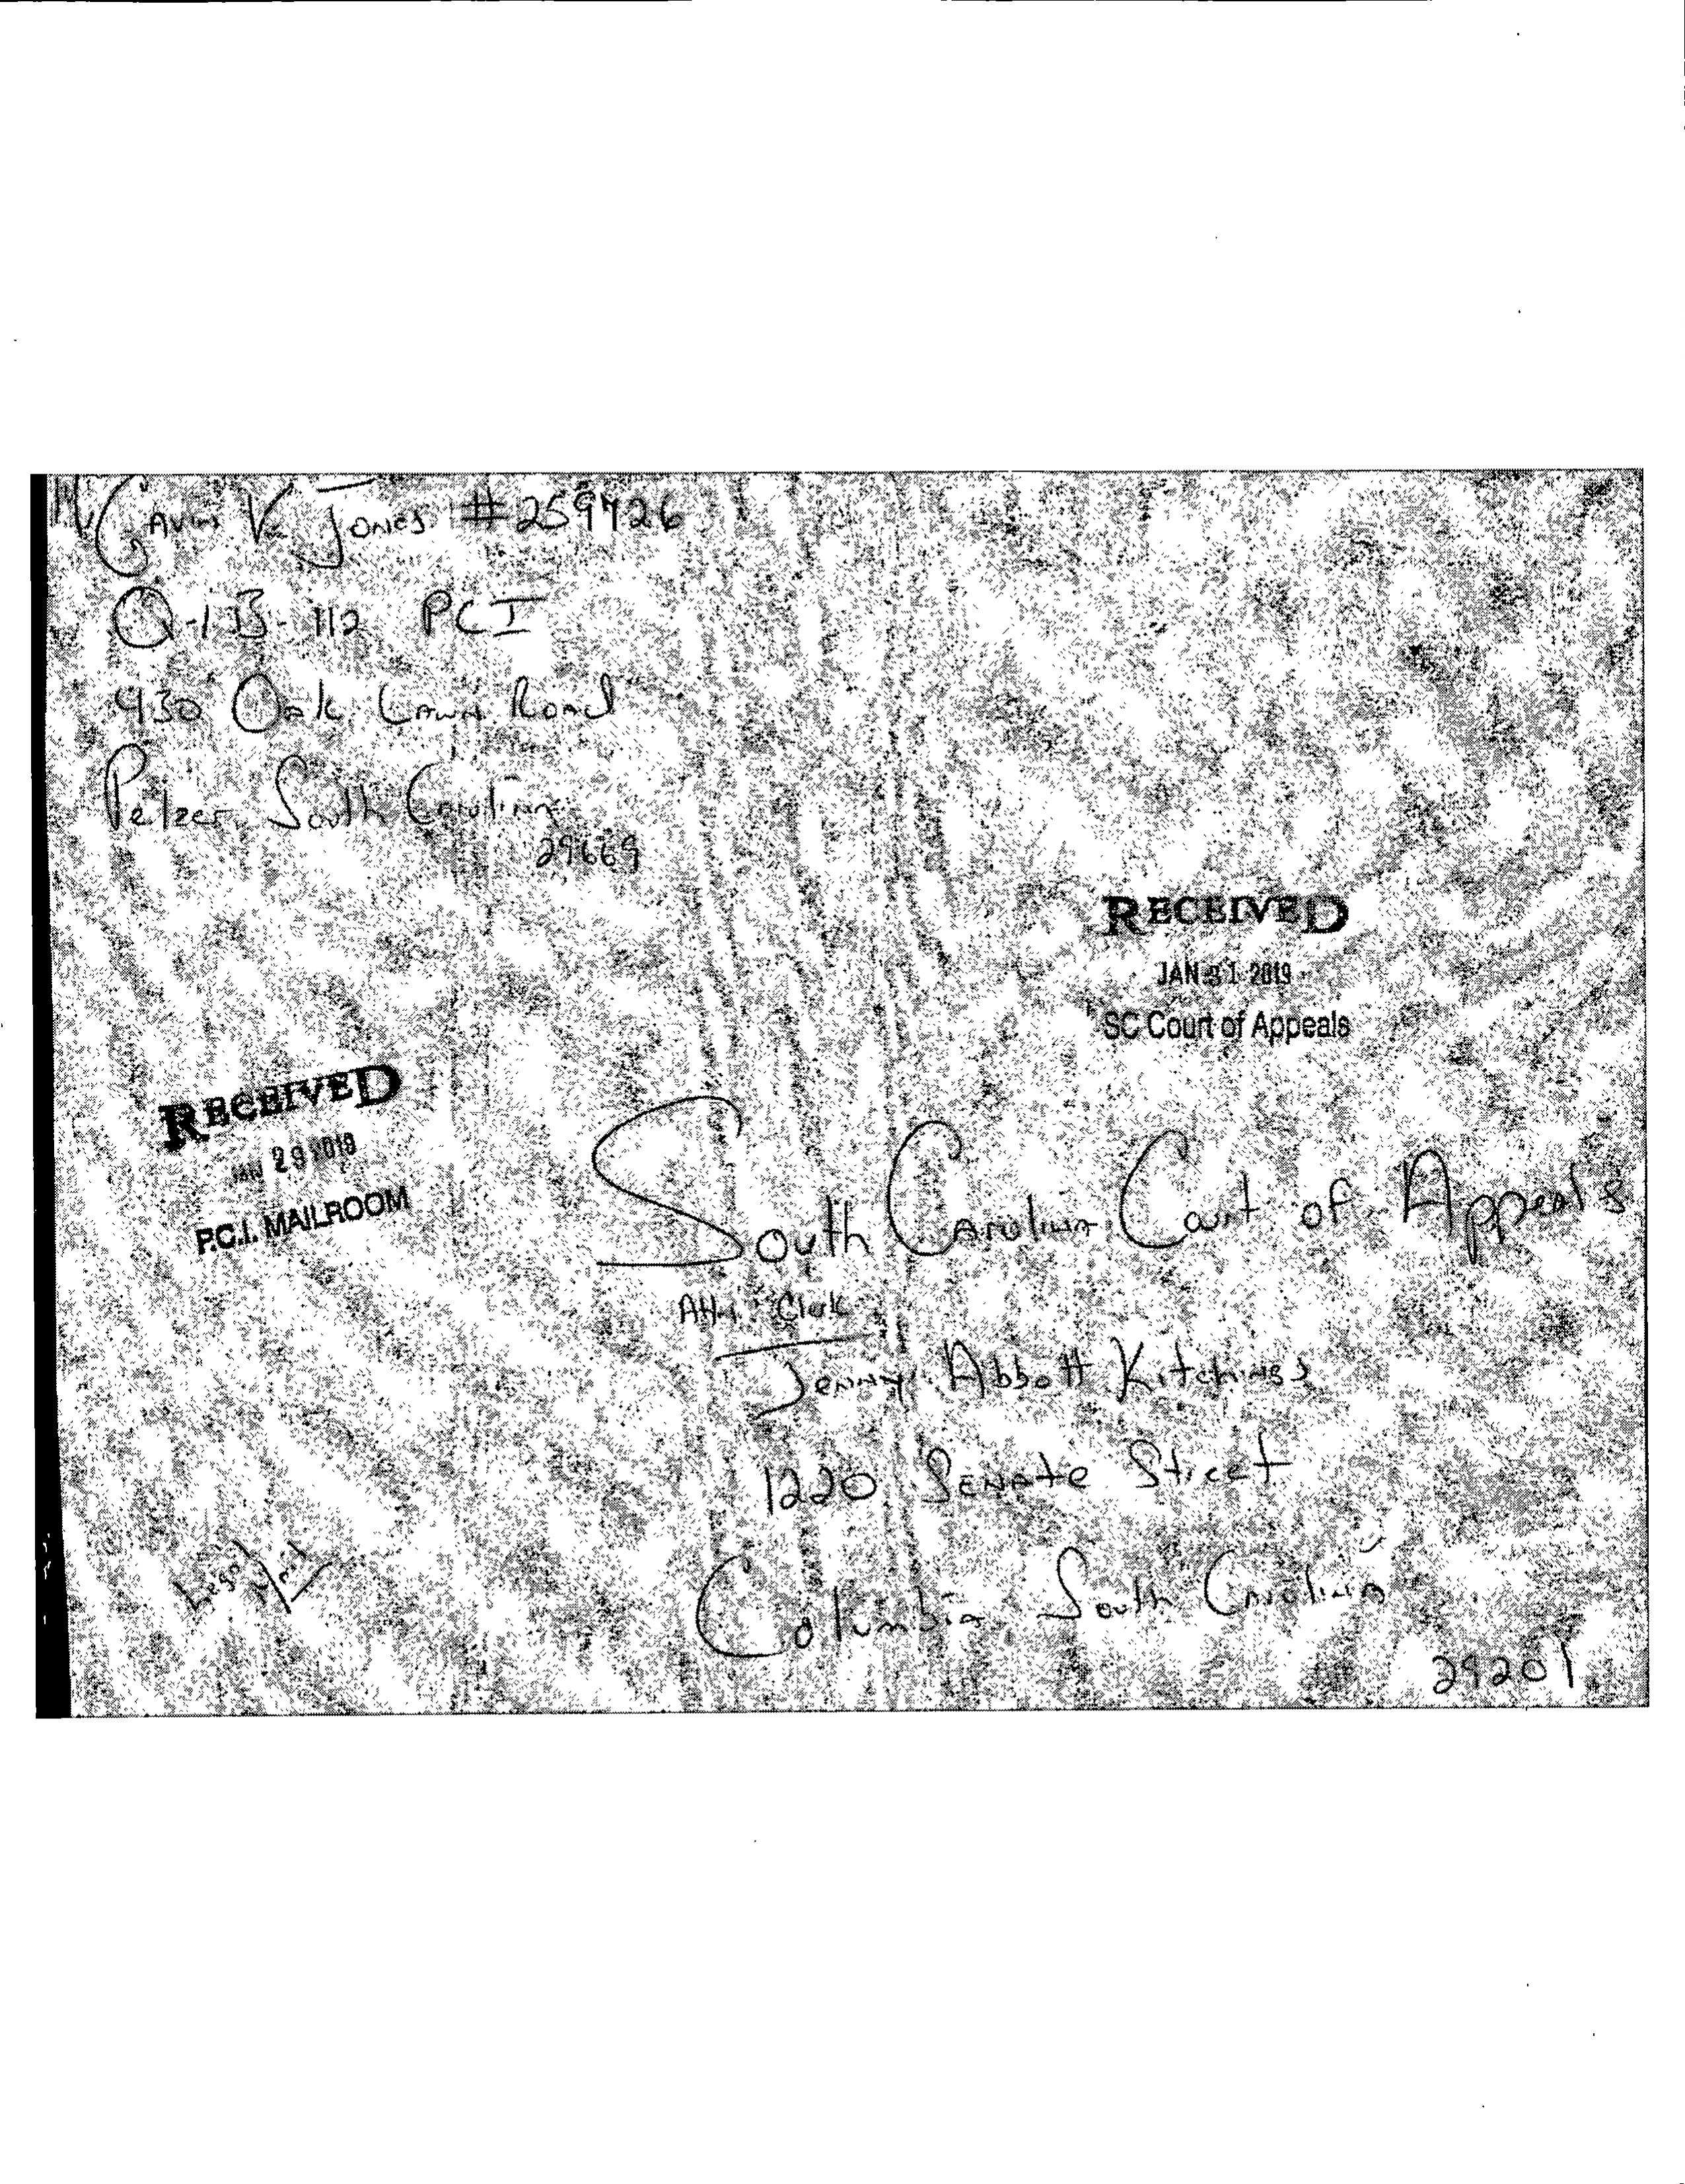 Gavin V. Jones #259726
Q-1B-112 PCI
430 Oak Lawn Road
Pelzer, South Carolina
29669
RECEIVED
JAN 31 2019
SC Court of Appeals
RECEIVED
JAN 29 2019
P.C.I. MAILROOM
South Carolina Court of Appeals
Attn: Clerk
Jenny Abbott Kitchings
1220 Senate Street
Columbia, South Carolina
29201
Legal Mail